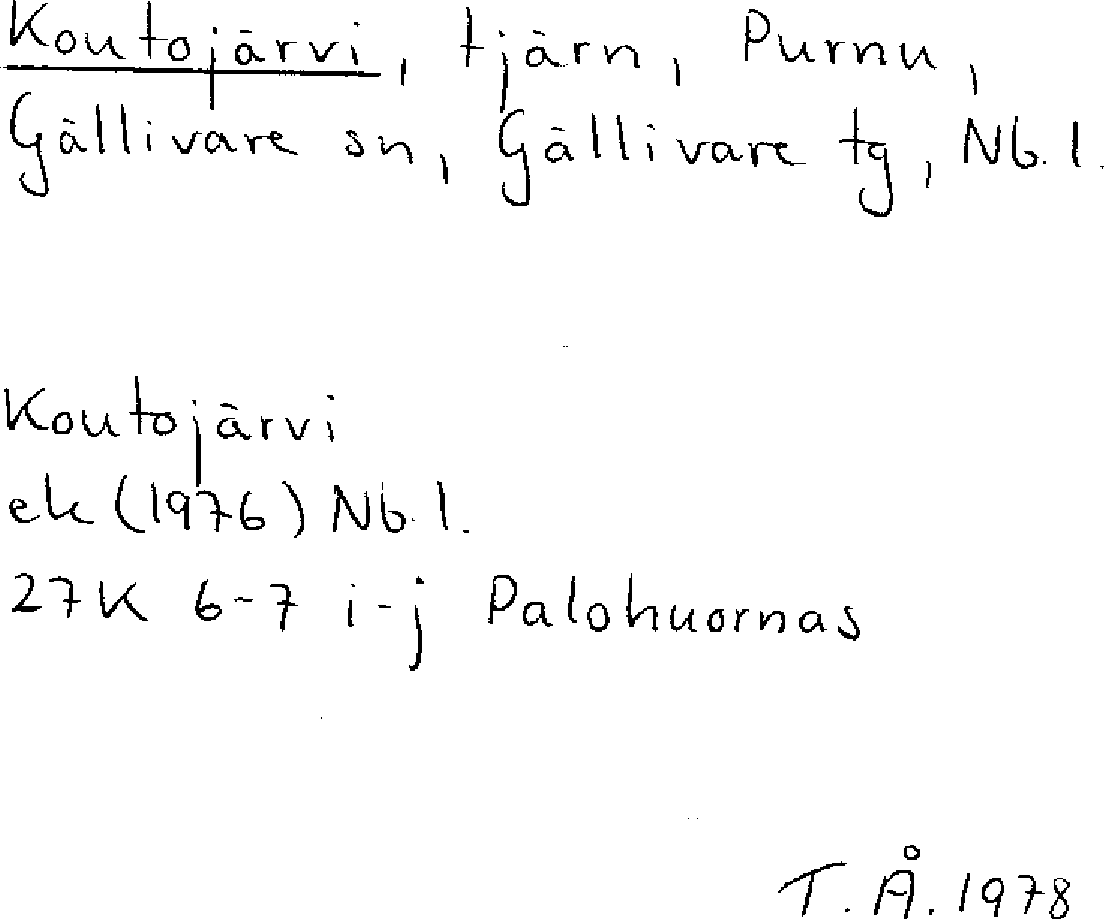 Koutojärvi, tjärn, Purnu,
Gällivare sn, Gällivare tg, Nb. l.
Koutojärvi
ek (1976) Nb. l.
27K 6-7 i-j Palohuornas
T. Å. 1978